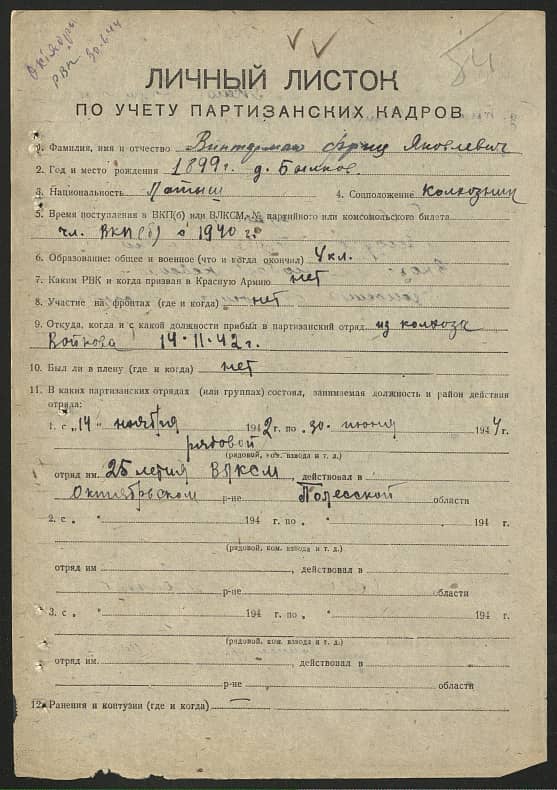 Октябр.
РВК 30.6.44
84
ЛИЧНЫЙ ЛИСТОК
ПО УЧЕТУ ПАРТИЗАНСКИХ КАДРОВ
1. Фамилия, имя и отчество Винтерман Фриц Яковлевич
2. Год и место рождения 1899 г. д.
3. Национальность Латыш 4. Соцположение Колхозник
5. Время поступления в ВКП(б) или ВЛКСМ, № партийного или комсомольского билета
чл. ВКП(б) с 1940 г.
6. Образование: общее и военное (что и когда окончил) 4 кл.
7. Каким РВК и когда призван в Красную Армию нет
8. Участие на фронтах (где и когда) нет
9. Откуда, когда и с какой должности прибыл в партизанский отряд из колхоза
Войкова 14.11.42 г.
10. Был ли в плену (где и когда) нет
11. В каких партизанских отрядах (или группах) состоял, занимаемая должность и район действия
отряда:
1. с „14" ноября 1942 г. по „30" июня 1944 г.
рядовой
(рядовой, ком. взвода и т. д.)
отряд им. 25 летия ВЛКСМ, действовал в
Октябрьском р-не Полесской области
2. с „ " 194 г. по „ " 194 г.
(рядовой, ком. взвода и т. д.)
отряд им. , действовал в
р-не области
3. с „ " 194 г. по „ " 194 г.
(рядовой, ком. взвода и т. д.)
отряд им. , действовал в
р-не области
12. Ранения и контузии (где и когда) —